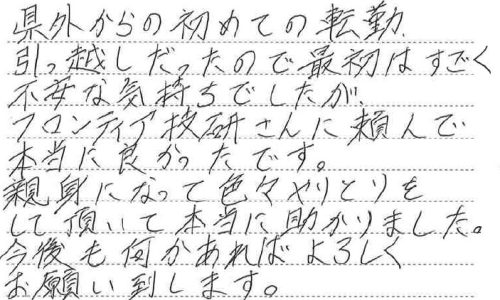 県外からの初めての転勤、
引っ越しだったので最初はすごく
不安な気持ちでしたが、
フロンティア技研さんに頼んで
本当に良かったです。
親身になって色々やりとりを
して頂いて本当に助かりました。
今後も何かあればよろしく
お願い到します。